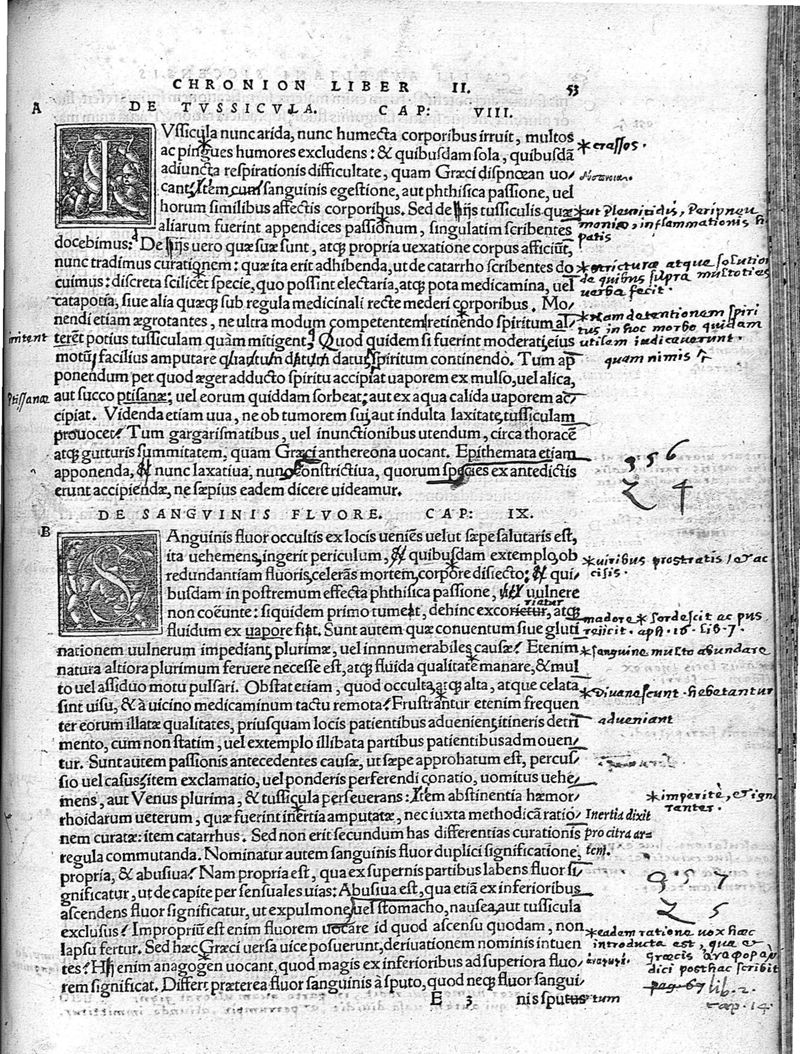 CHRONION LIBER II. 53
A DE TVSSICVLA. CAP: VIII.
TVssicula nunc arida, nunc humecta corporibus irruit, multos
ac pingues humores excludens: & quibusdam sola, quibusdã
adiuncta respirationis difficultate, quam Græci dispnœan uo⸗
cant. Item cum sanguinis egestione, aut phthisica passione, uel
horum similibus affectis corporibus. Sed de ijs tussiculis quæ
aliarum fuerint appendices passionum, singulatim scribentes
docebimus: De ijs uero quæ suæ sunt, atq; propria uexatione corpus afficiũt,
nunc tradimus curationem: quæ ita erit adhibenda, ut de catarrho scribentes do
cuimus: discreta scilicet specie, quo possint electaria, atq; pota medicamina, uel
catapotia, siue alia quæq; sub regula medicinali recte mederi corporibus. Mo⸗
nendi etiam ægrotantes, ne ultra modum competentem retinendo spiritum al⸗
terẽt potius tussiculam quàm mitigent? Quod quidem si fuerint moderati, eius
motũ facilius amputare datur, spiritum continendo. Tum ap
ponendum per quod æger adducto spiritu accipiat uaporem ex mulso, uel alica,
aut succo ptisanæ; uel eorum quiddam sorbeat; aut ex aqua calida uaporem ac⸗
cipiat. Videnda etiam uua, ne ob tumorem sui, aut indulta laxitate, tussiculam
prouocet? Tum gargarismatibus, uel inunctionibus utendum, circa thoracẽ
atq; gutturis summitatem, quam Græci anthereona uocant. Epithemata etiam
apponenda, & nunc laxatiua, nunc constrictiua, quorum species ex antedictis
erunt accipiendæ, ne sæpius eadem dicere uideamur.
DE SANGVINIS FLVORE. CAP: IX.
B
SAnguinis fluor occultis ex locis ueniẽs uelut sæpe salutaris est,
ita uehemens, ingerit periculum, & quibusdam extemplo, ob
redundantiam fluoris, celerãs mortem, corpore disiecto; & qui⸗
busdam in postremum effecta phthisica passione, uulnere
non coëunte: siquidem primo tumeat, dehinc excorietur, atq;
fluidum ex uapore fiat. Sunt autem quæ conuentum siue gluti
nationem uulnerum impediant plurimæ, uel innnumerabiles causæ? Etenim
natura altiora plurimum feruere necesse est, atq; fluida qualitate manare, & mul
to uel assiduo motu pulsari. Obstat etiam, quod occulta, atq; alta, atque celata
sint uisu, & à uicino medicaminum tactu remota? Frustrantur etenim frequen
ter eorum illatæ qualitates, priusquam locis patientibus adueniẽt, itineris detri
mento, cum non statim, uel extemplo illibata partibus patientibus admouen⸗
tur. Sunt autem passionis antecedentes causæ, ut sæpe approbatum est, percus⸗
sio uel casus: item exclamatio, uel ponderis perferendi conatio, uomitus uehe⸗
mens, aut Venus plurima, & tussicula perseuerans: Item abstinentia hæmor⸗
rhoidarum ueterum, quæ fuerint inertia amputatæ, nec iuxta methodicã ratio⸗
nem curatæ: item catarrhus. Sed non erit secundum has differentias curationis
regula commutanda. Nominatur autem sanguinis fluor duplici significatione,
propria, & abusiua? Nam propria est, qua ex supernis partibus labens fluor si⸗
gnificatur, ut de capite per sensuales uias: Abusiua est, qua etiã ex inferioribus
ascendens fluor significatur, ut expulmone, uel stomacho, nausea, aut tussicula
exclusus? Improprium est enim fluorem uocare id quod ascensu quodam, non
lapsu fertur. Sed hæc Græci uersa uice posuerunt, deriuationem nominis intuen
tes? Hi enim anagogen uocant, quod magis ex inferioribus ad superiora fluo⸗
rem significat. Differt præterea fluor sanguinis à sputo, quod neq; fluor sangui⸗
E 3 nis sputus tum
irritent
Ptissanæ
*crassos.
*ut Pleuritidis, Peripneu
moniæ, inflammationis he
patis
*stricturæ atque solution
de quibus supra multoties
uerba fecit.
*Nam detentionem spiri
tus in hoc morbo quidam
utilem iudicauerunt.
quam nimis
356
Z 4
*uiribus prostratis
riatur
madore *sordescit ac pus
reijcit. aph. 16. lib. 7.
*sanguine multo abundare
*Diuanescunt. hebetantur
adueniant
*imperitè, & igno
ranter.
Inertia dixit
pro citra ar⸗
tem.
957
Z 5
*eadem ratione uox hæc
introducta est, qua
Græcis
dici posthac scribit
pag. 67 lib. 2.
cap. 14.